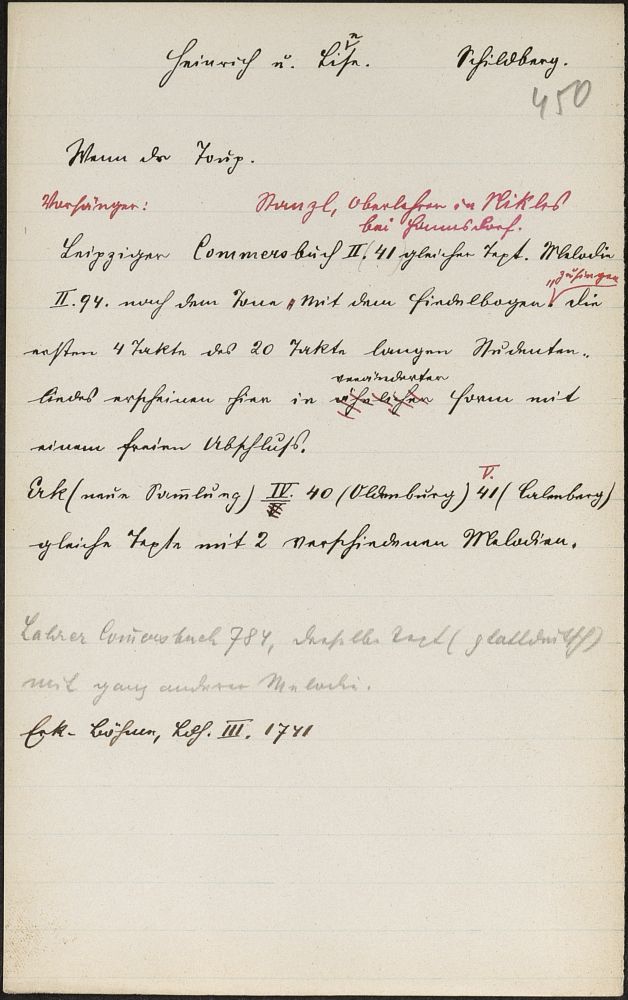 Heinrich u. Liese. Schildberg.
450
Wenn der Toup.
Vorsänger: Stanzl, Oberlehrer in Nikles
bei Hannsdorf.
Leipziger Commersbuch II, 41 gleicher Text. Melodie
II. 94. nach dem Tone „Mit dem Fiedelbogen" „zusingen Die
ersten 4 Takte des 20 Takte langen Studenten-
liedes erscheinen hier in veränderter Form mit
einem freien Abschluß.
Erk (neue Sammlung) IV. 40 (Oldenburg) V. 41 (Calenberg)
gleiche Texte mit 2 verschiedenen Melodien.
Lahrer Commersbuch 784, derselbe Text (plattdeutsch)
mit ganz anderer Melodie.
Erk-Böhme, Ldh. III. 1741